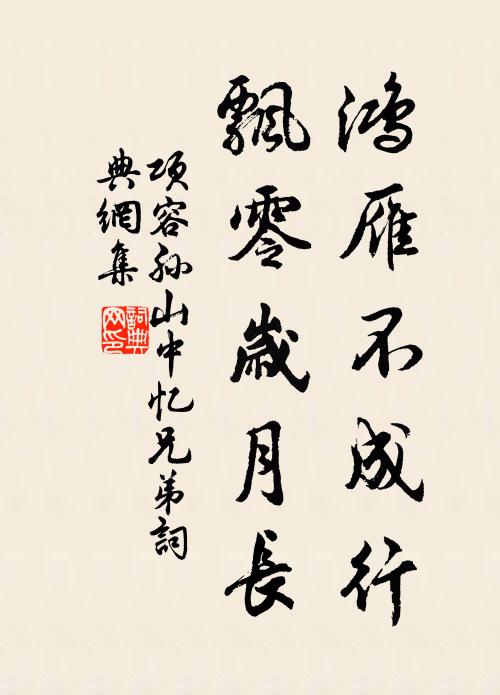 鴻雁不成行
飄零歲月長
項容孫山中忆兄弟詞
典網集
詞典
网印